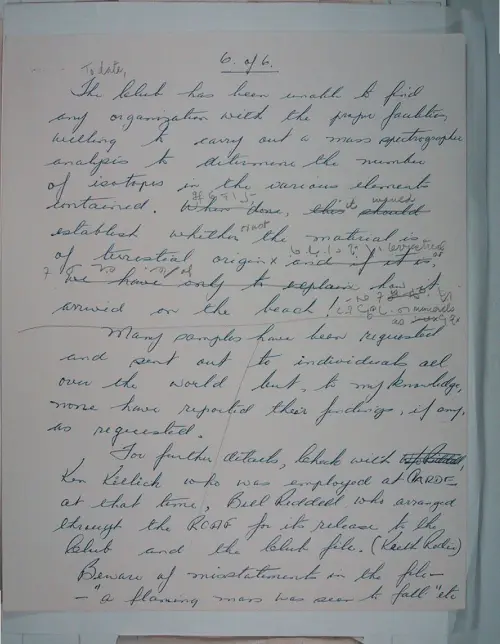 6. of 6.
To date,
The Club has been unable to find
any organization with the proper facilities,
willing to carry out a mass spectrographic
analysis to determine the number
of isotopes in the various elements
contained. When done, this it should would
establish whether or not the material is
of terrestrial origin and if it is,
we have only to explain how it
arrived on the beach.
Many samples have been requested
and sent out to individuals all
over the world but, to my knowledge,
none have reported their findings, if any,
as requested.
For further details, check with
Ken who was employed at CARDE
at that time, Bill Riddell who arranged
through the RCAF for its release to the
Club and the Club file. (Keith )
Beware of misstatements in the file—
— "a flaming mass was seen to fall" etc